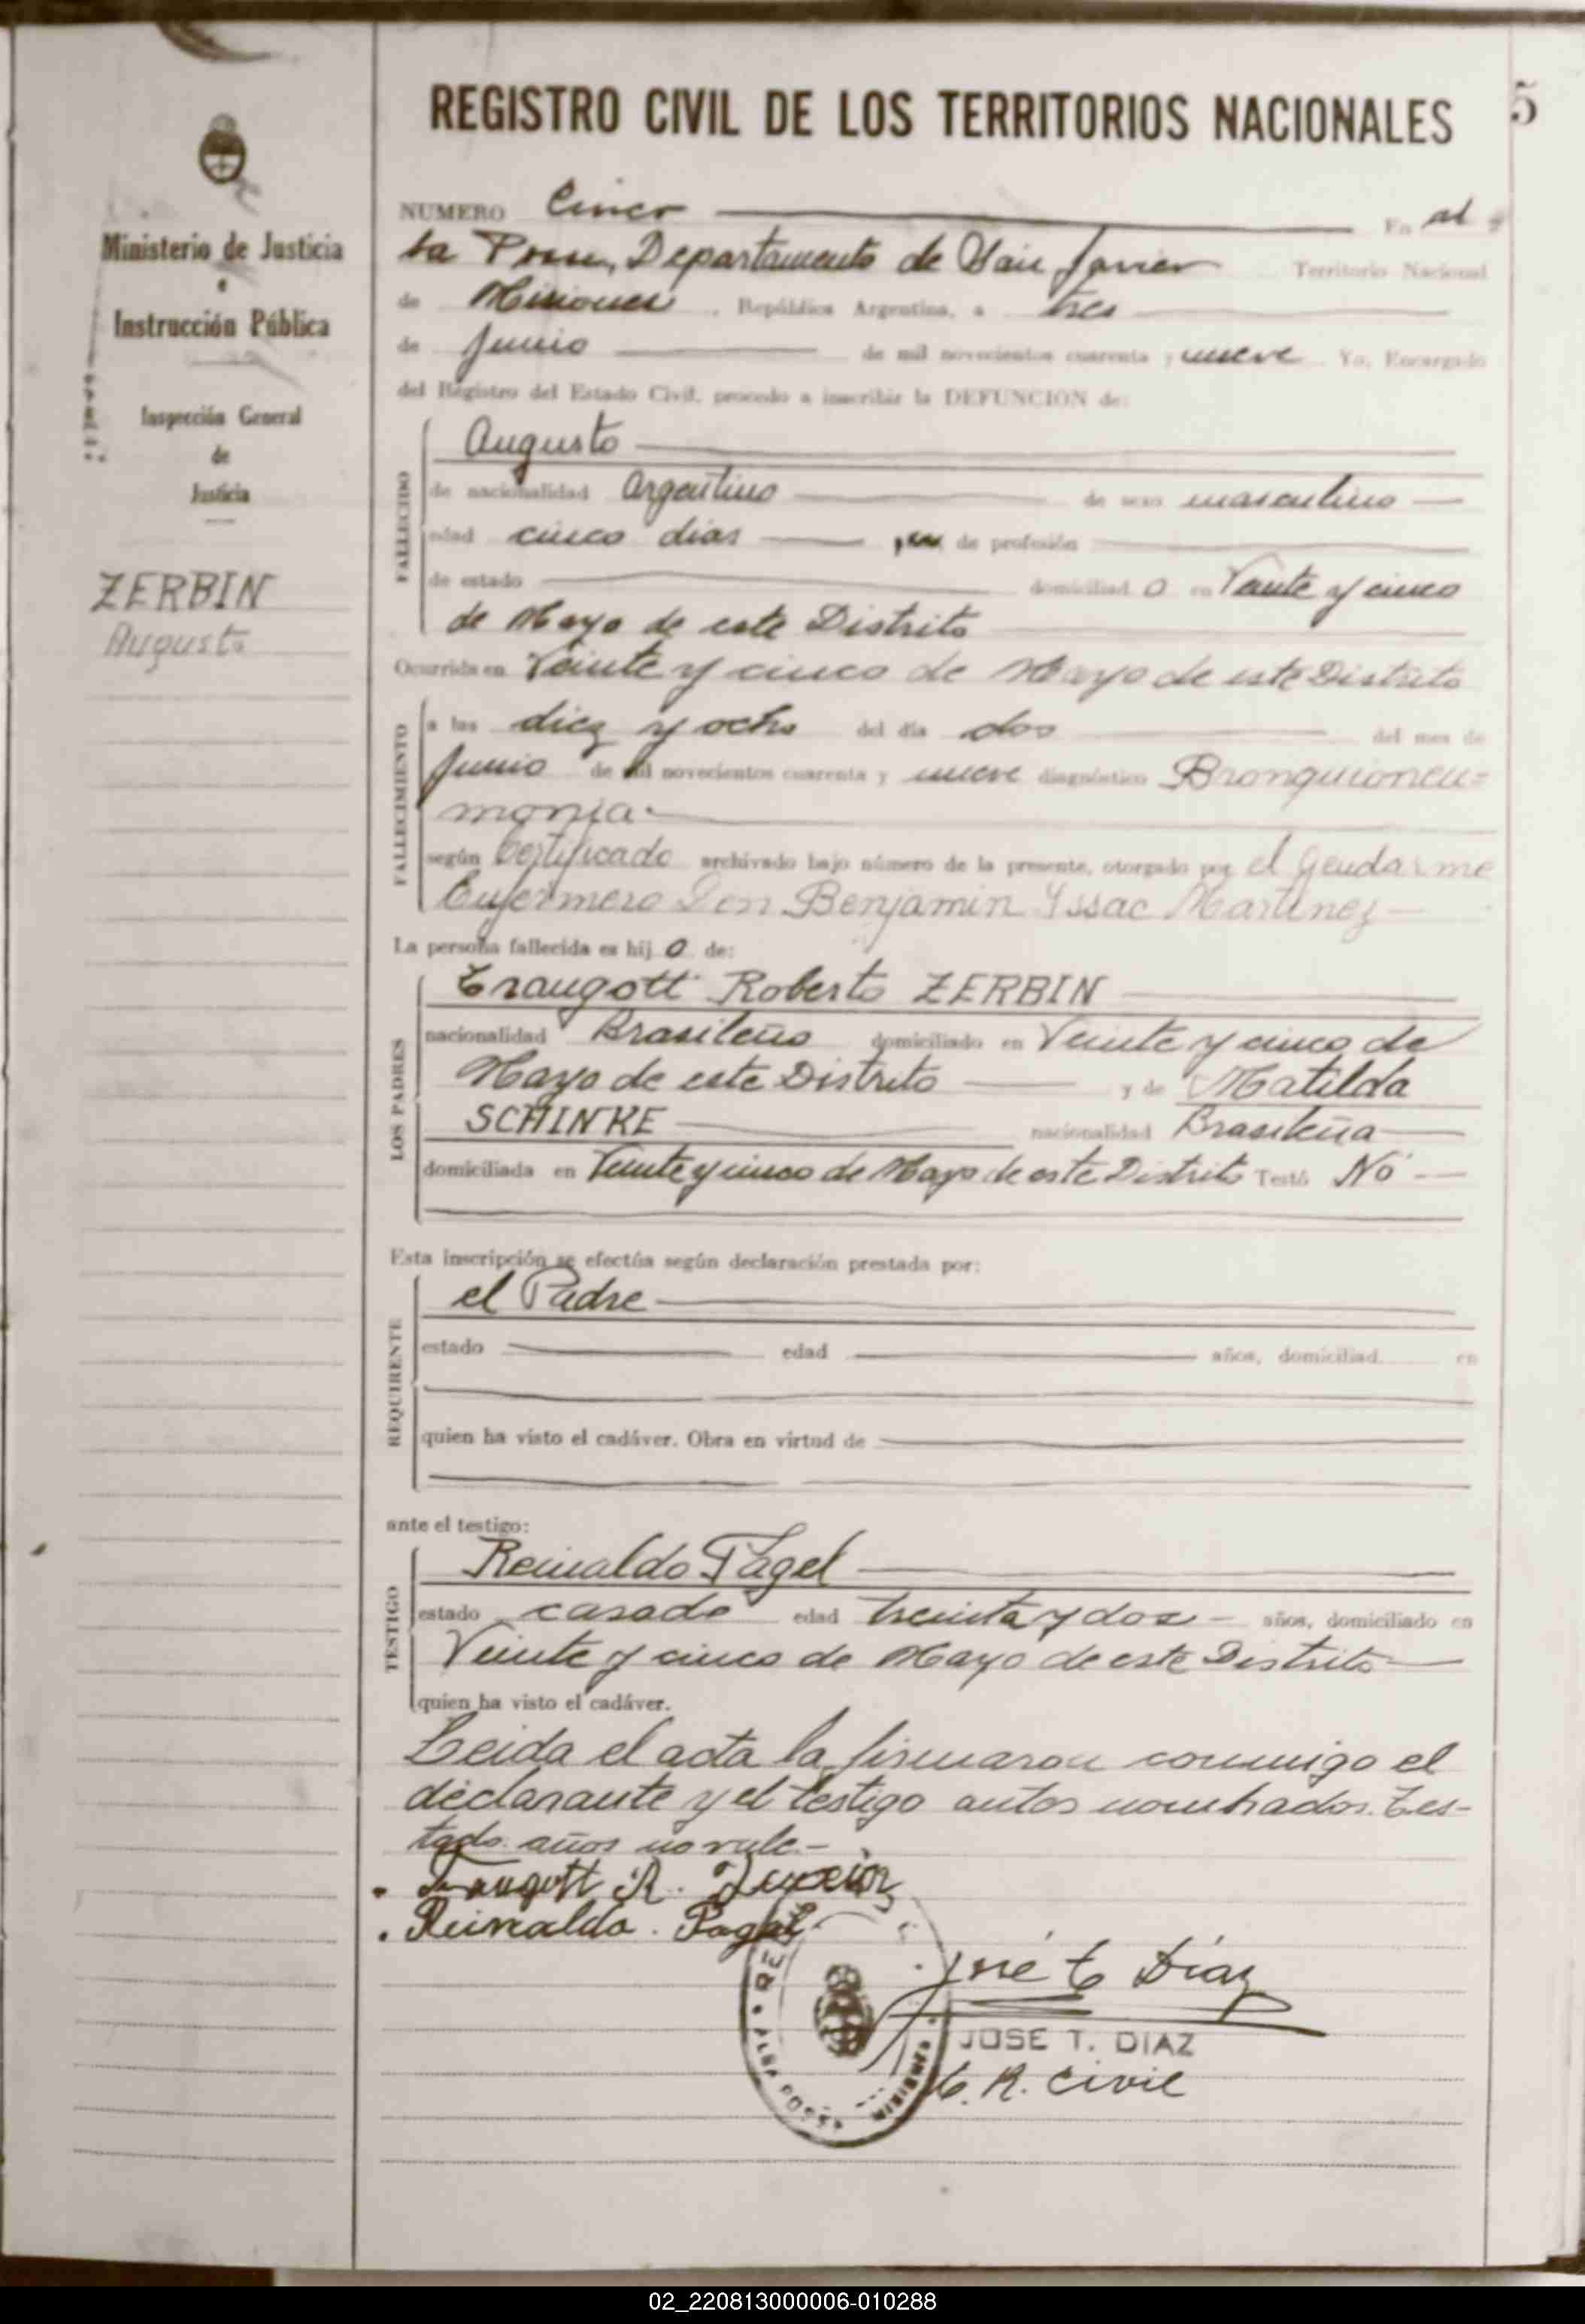 REGISTRO CIVIL DE LOS TERRITORIOS NACIONALES
5
Ministerio de Justicia
e
Instrucción Pública
Inspección General
de
Justicia
ZERBIN
Augusto
NUMERO Cinco En al
ba Posse, Departamento de San Javier Territorio Nacional
de Misiones, República Argentina, a tres
de Junio de mil novecientos cuarenta y nueve Yo, Encargado
del Registro del Estado Civil, procedo a inscribir la DEFUNCION de:
FALLECIDO
Augusto
de nacionalidad Argentino de sexo masculino
edad cinco dias de profesión
de estado domiciliad o en Veinte y cinco
de Mayo de este Distrito
Ocurrida en Veinte y cinco de Mayo de este Distrito
FALLECIMIENTO
a las diez y ocho del día dos del mes de
Junio de mil novecientos cuarenta y nueve diagnóstico Bronquioneu=
monia.
según Certificado archivado bajo número de la presente, otorgado por el Gendarme
Enfermero Don Benjamin Yssac Martinez
La persona fallecida es hij o de:
LOS PADRES
Traugott Roberto ZERBIN
nacionalidad Brasileño domiciliado en Veinte y cinco de
Mayo de este Distrito y de Matilda
SCHINKE nacionalidad Brasileña
domiciliada en Veinte y cinco de Mayo de este Distrito Testó No
Esta inscripción se efectúa según declaración prestada por:
REQUIRENTE
el Padre
estado edad años, domiciliad en
quien ha visto el cadáver. Obra en virtud de
ante el testigo:
TESTIGO
Reinaldo Pagel
estado casado edad treinta y dos años, domiciliado en
Veinte y cinco de Mayo de este Distrito
quien ha visto el cadáver.
Leida el acta la firmaron conmigo el
declarante y el testigo antes nombrados. Tes-
tado. años no vale.-
Traugott R.
Reinaldo. Pagel
José T Díaz
JOSE T. DIAZ
E. R. Civil
ALBA POSSE
02_220813000006-010288